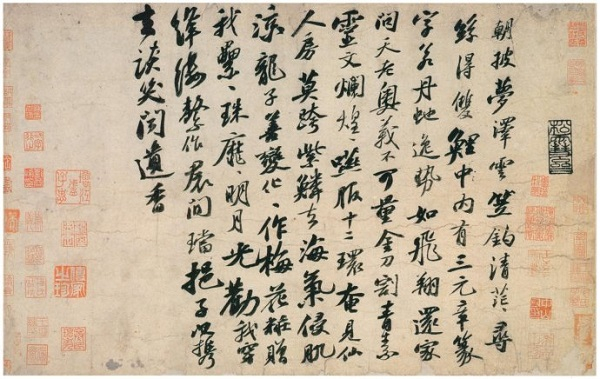 朝披夢澤雲笠釣清茫〻尋
絲得雙鯉中內有三元章篆
字若丹虵逸勢如飛翔還家
問天老奧義不可量金刀割青素
靈文爛煌〻嚥服十二環奄見仙
人房莫跨紫鱗去海氣侵肌
涼龍子善變化〻作梅花粧贈
我纍〻珠靡〻明月光勸我穿
絳縷繫作裾間璫挹子以攜
去談笑聞遺香